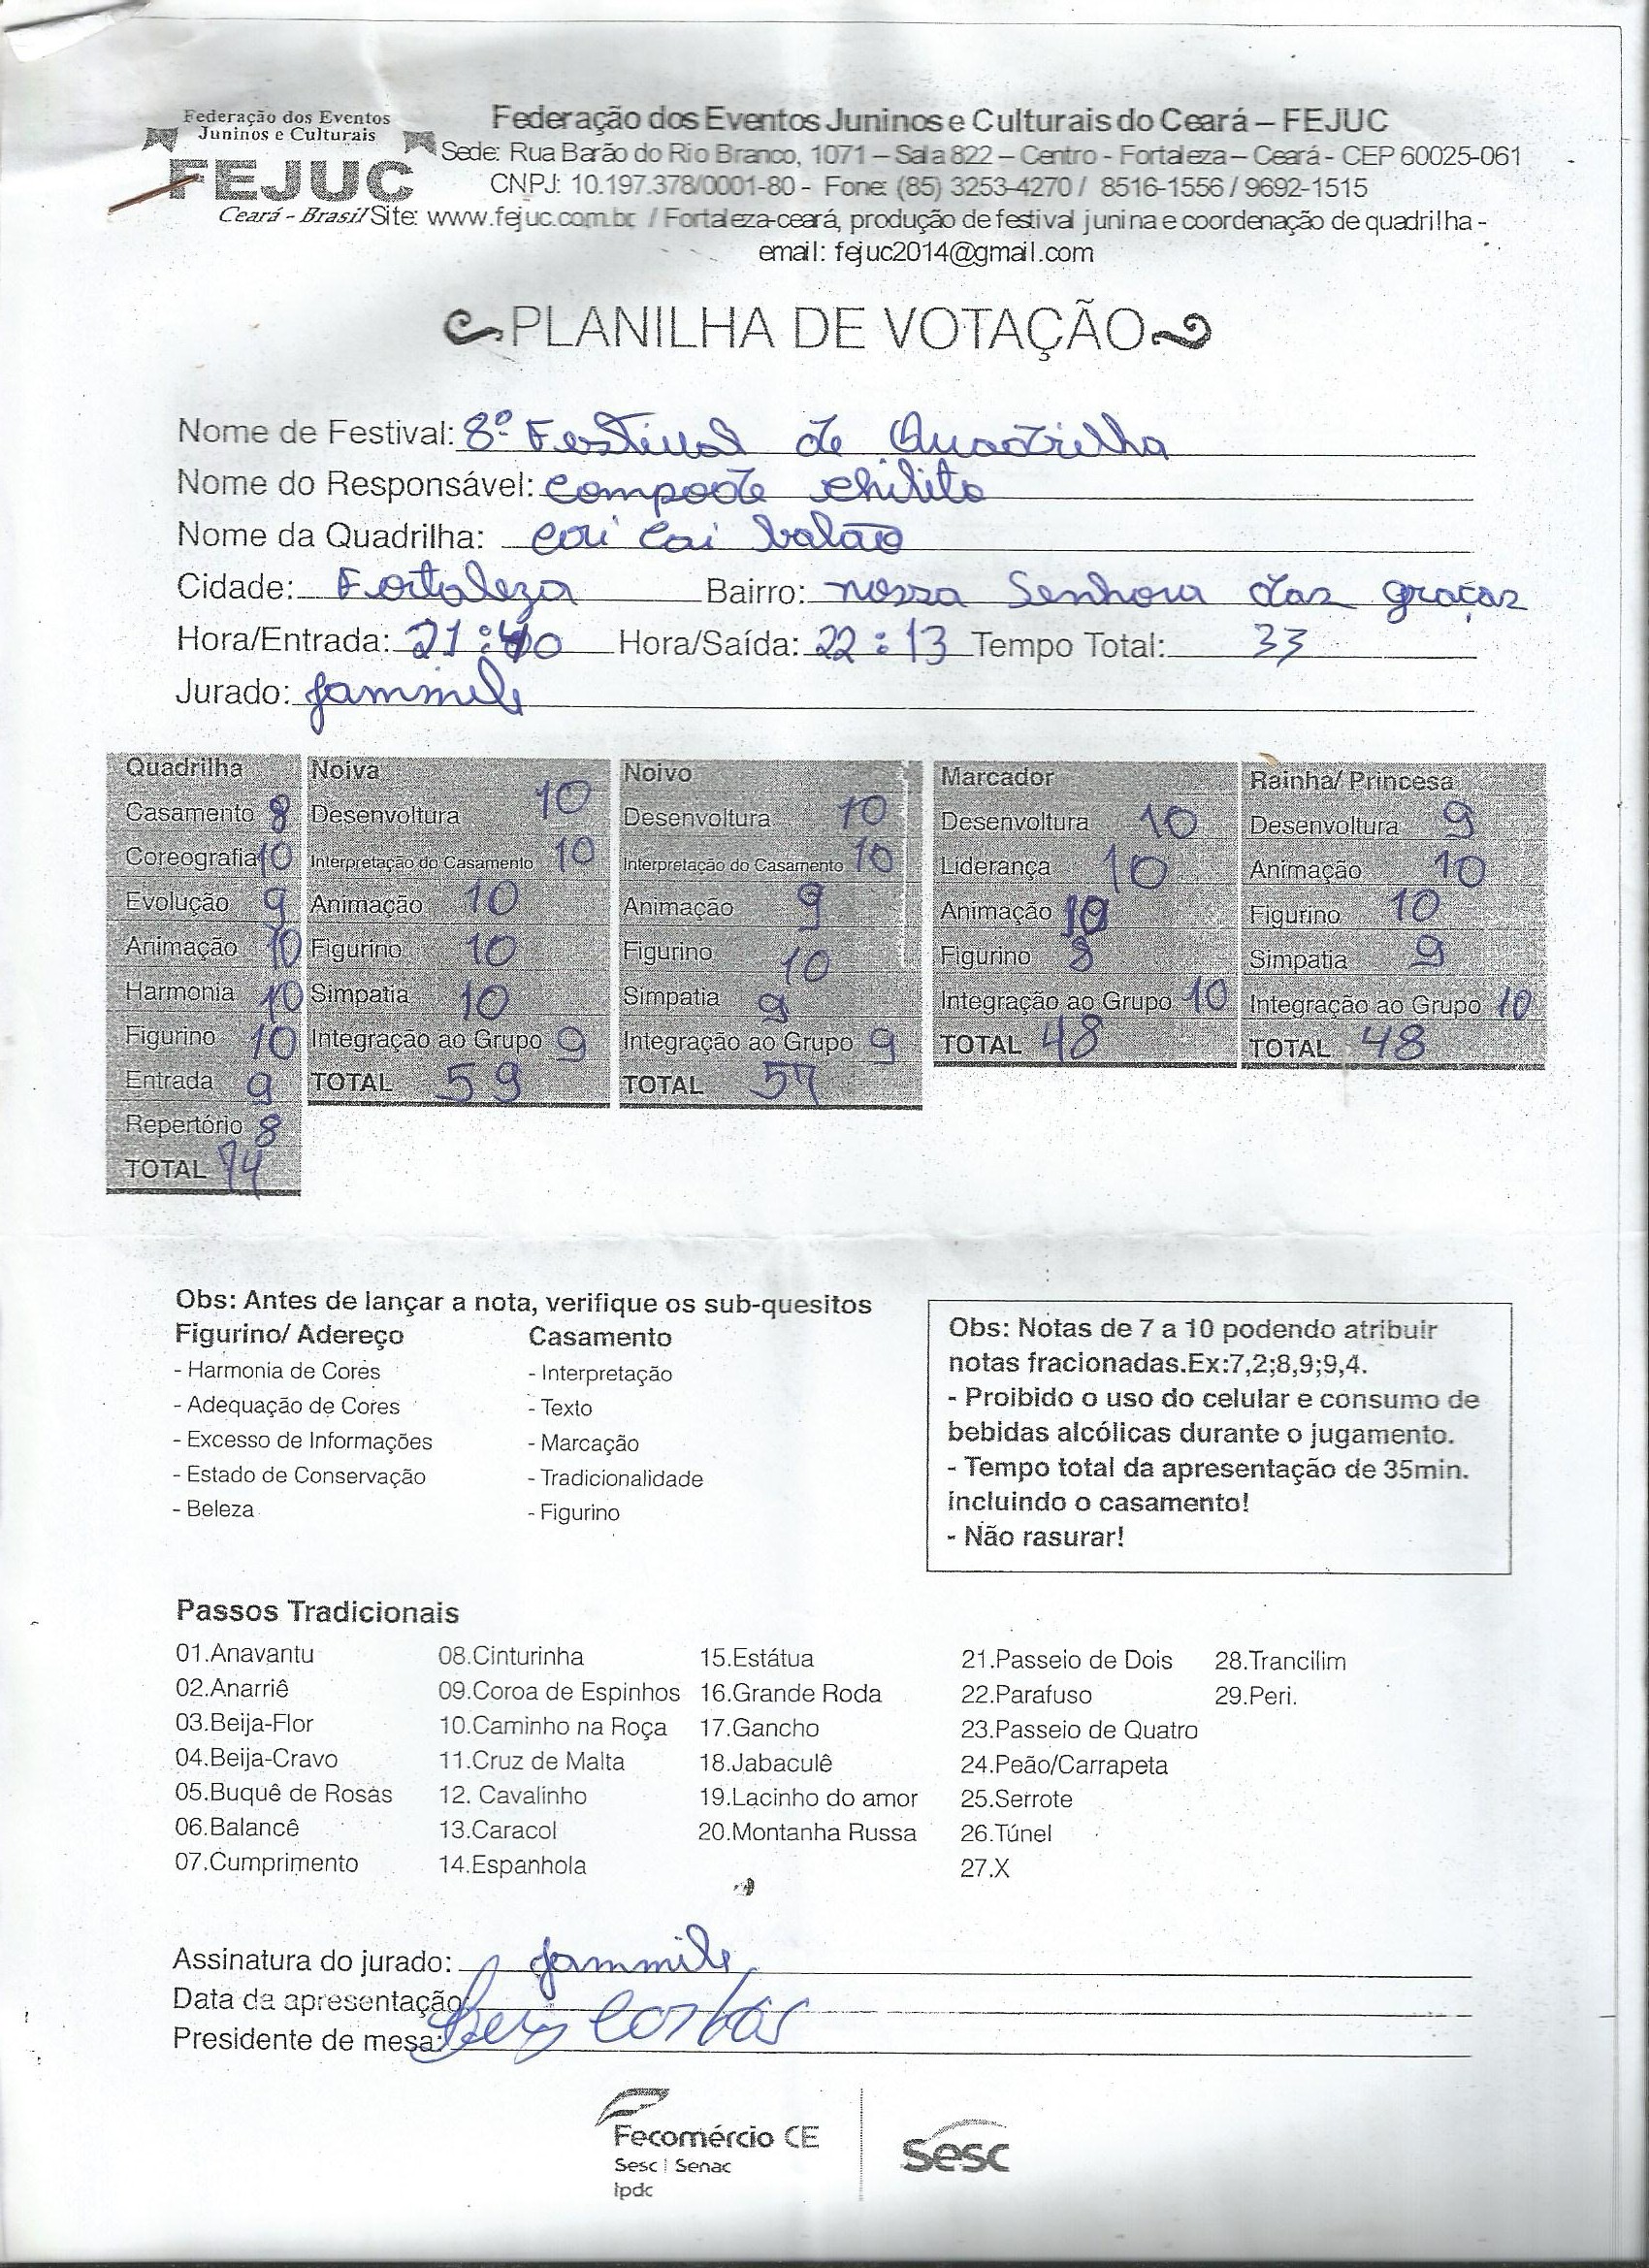 Federação dos Eventos
Juninos e Culturais
FEJUC
Ceará - Brasil
Federação dos Eventos Juninos e Culturais do Ceará – FEJUC
Sede: Rua Barão do Rio Branco, 1071 – Sala 822 – Centro - Fortaleza – Ceará - CEP 60025-061
CNPJ: 10.197.378/0001-80 - Fone: (85) 3253-4270 / 8516-1556 / 9692-1515
Site: www.fejuc.com.br / Fortaleza-ceará, produção de festival junina e coordenação de quadrilha -
email: fejuc2014@gmail.com
PLANILHA DE VOTAÇÃO
Nome de Festival: 8º Festival de Quadrilha
Nome do Responsável: compade chilito
Nome da Quadrilha: cai cai balão
Cidade: Fortaleza Bairro: nossa Senhora das graças
Hora/Entrada: 21:40 Hora/Saída: 22:13 Tempo Total: 33
Jurado: Jammile
Quadrilha
Casamento 8
Coreografia 10
Evolução 9
Animação 10
Harmonia 10
Figurino 10
Entrada 9
Repertório 8
TOTAL 74
Noiva
Desenvoltura 10
Interpretação do Casamento 10
Animação 10
Figurino 10
Simpatia 10
Integração ao Grupo 9
TOTAL 59
Noivo
Desenvoltura 10
Interpretação do Casamento 10
Animação 9
Figurino 10
Simpatia 9
Integração ao Grupo 9
TOTAL 57
Marcador
Desenvoltura 10
Liderança 10
Animação 10
Figurino 8
Integração ao Grupo 10
TOTAL 48
Rainha/ Princesa
Desenvoltura 9
Animação 10
Figurino 10
Simpatia 9
Integração ao Grupo 10
TOTAL 48
Obs: Antes de lançar a nota, verifique os sub-quesitos
Figurino/ Adereço
- Harmonia de Cores
- Adequação de Cores
- Excesso de Informações
- Estado de Conservação
- Beleza
Casamento
- Interpretação
- Texto
- Marcação
- Tradicionalidade
- Figurino
Obs: Notas de 7 a 10 podendo atribuir
notas fracionadas.Ex:7,2;8,9;9,4.
- Proibido o uso do celular e consumo de
bebidas alcólicas durante o jugamento.
- Tempo total da apresentação de 35min.
incluindo o casamento!
- Não rasurar!
Passos Tradicionais
01.Anavantu
02.Anarriê
03.Beija-Flor
04.Beija-Cravo
05.Buquê de Rosas
06.Balancê
07.Cumprimento
08.Cinturinha
09.Coroa de Espinhos
10.Caminho na Roça
11.Cruz de Malta
12. Cavalinho
13.Caracol
14.Espanhola
15.Estátua
16.Grande Roda
17.Gancho
18.Jabaculê
19.Lacinho do amor
20.Montanha Russa
21.Passeio de Dois
22.Parafuso
23.Passeio de Quatro
24.Peão/Carrapeta
25.Serrote
26.Túnel
27.X
28.Trancilim
29.Peri.
Assinatura do jurado: Jammile
Data da apresentação:
Presidente de mesa:
Fecomércio CE
Sesc | Senac
Ipdc
Sesc